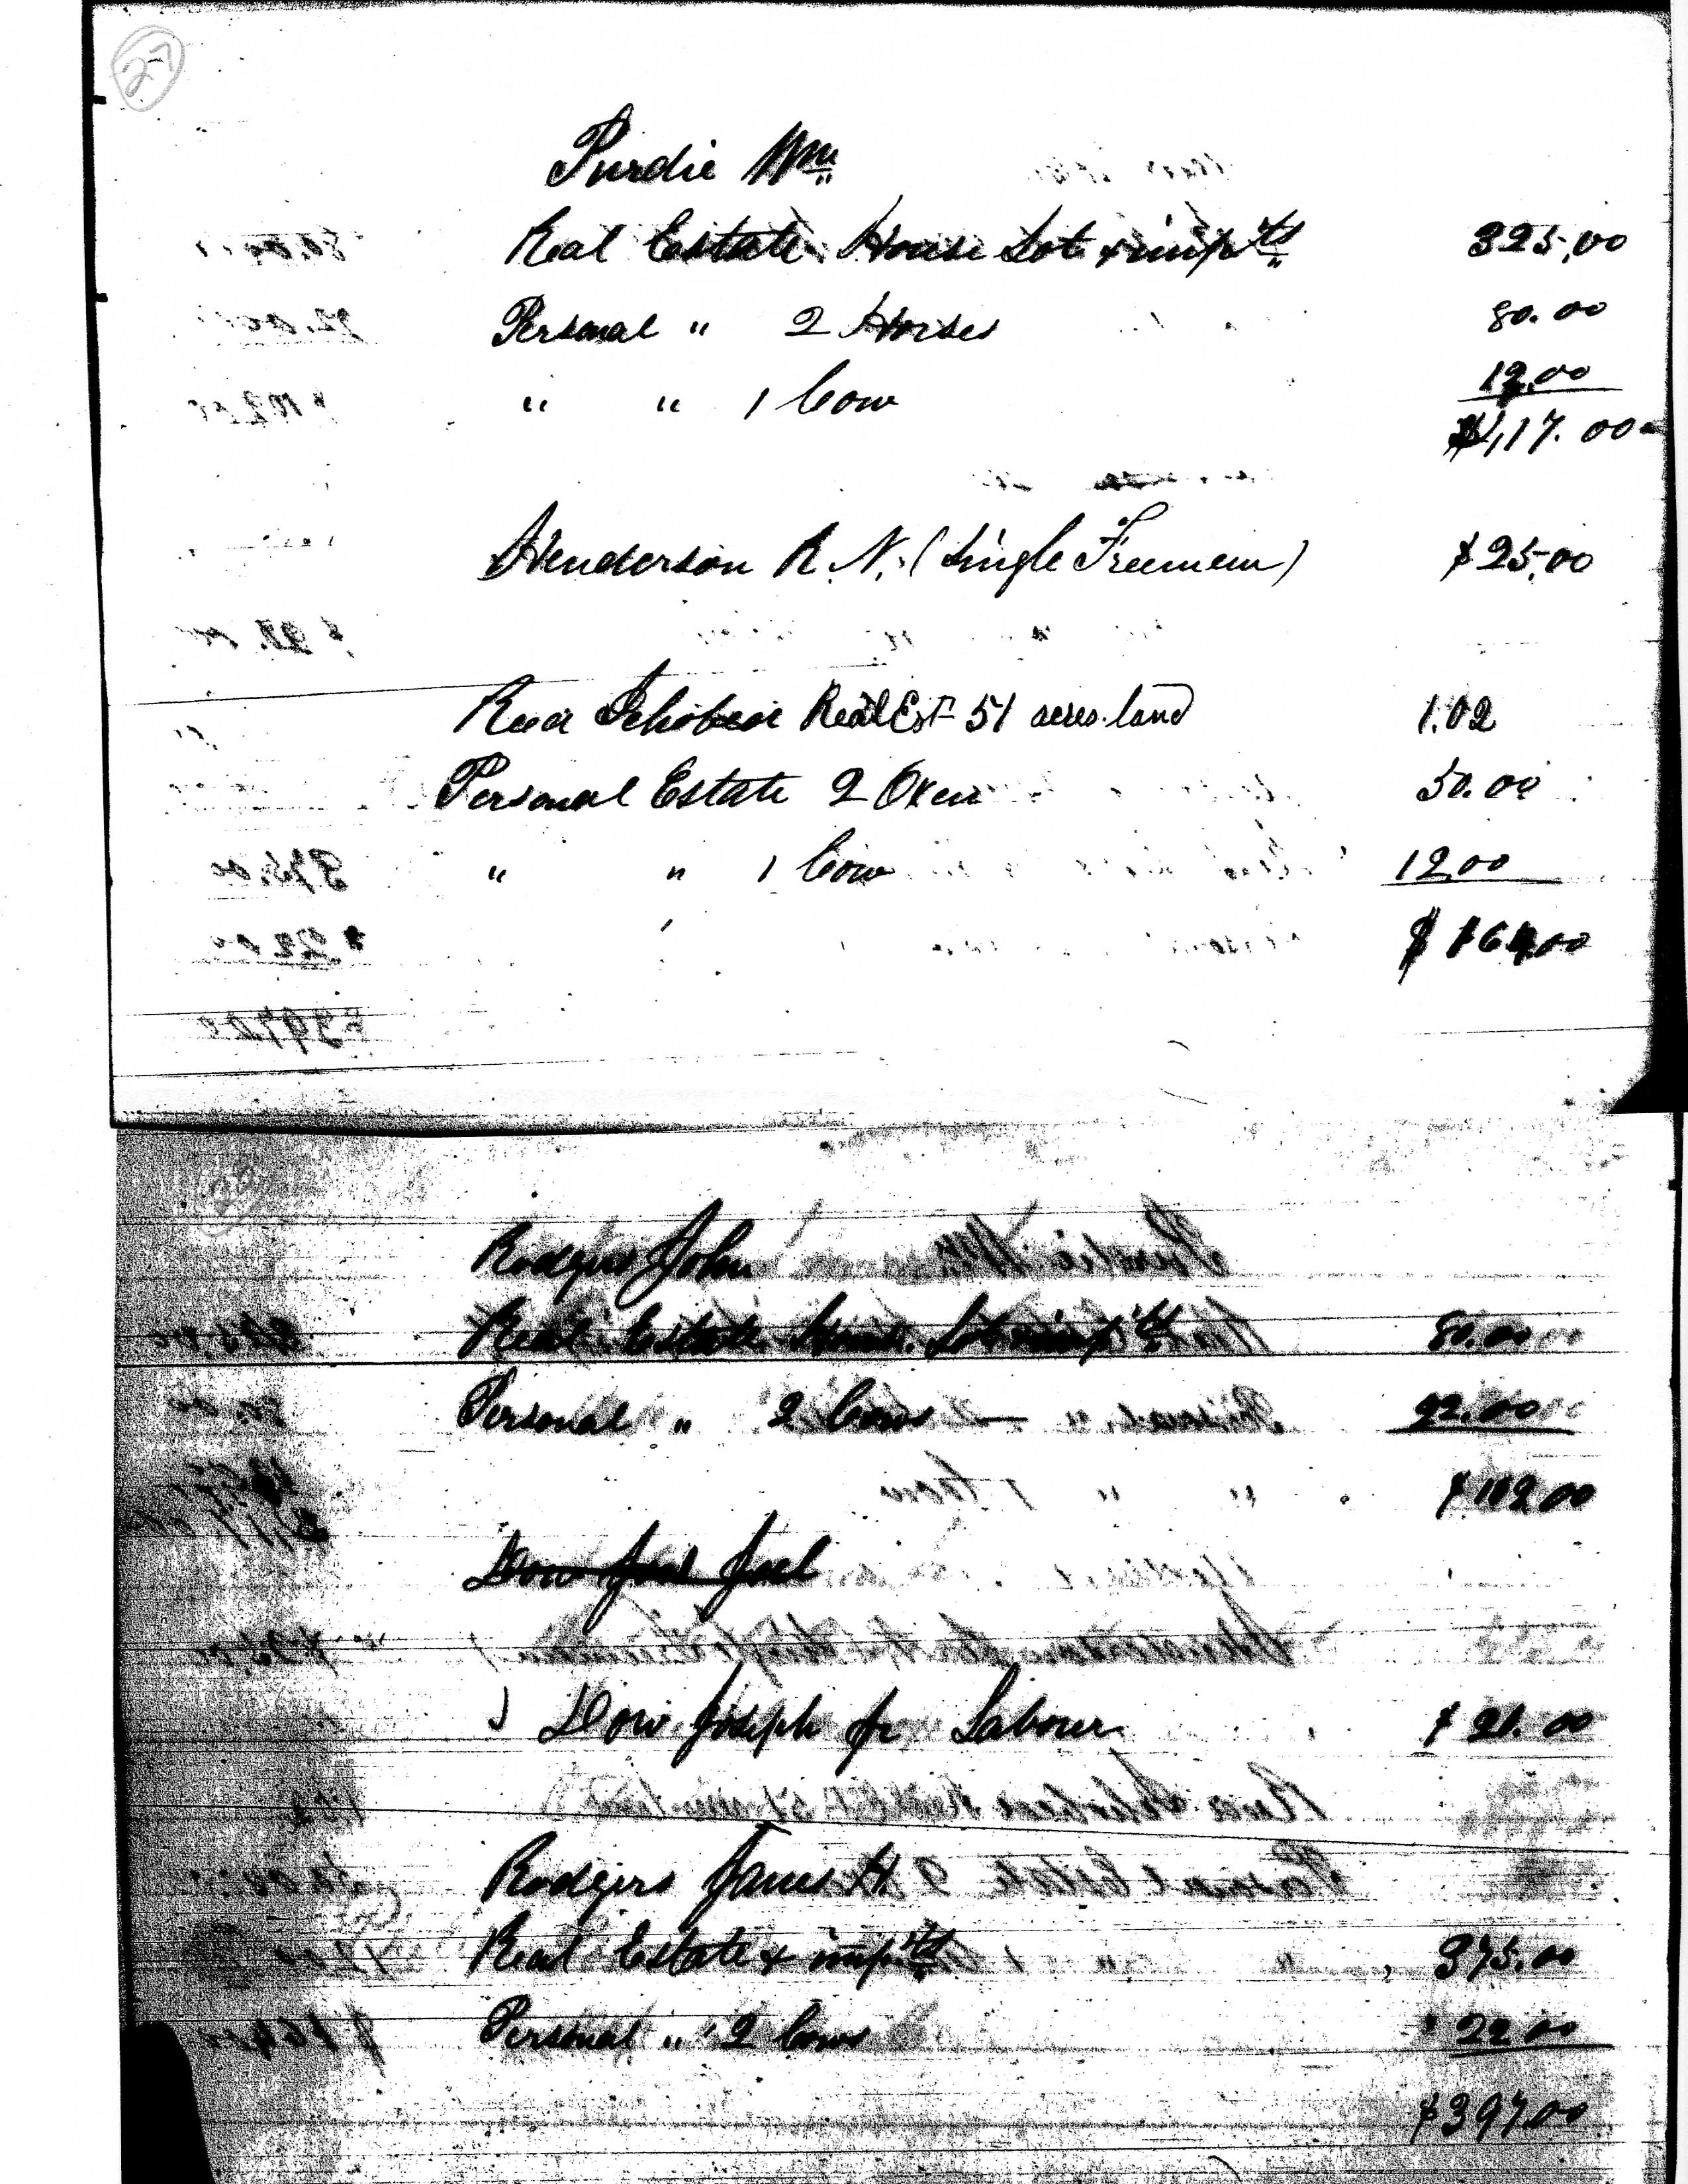 27
Purdie Wm
Real Estate House Lot & imp'ts 325.00
Personal " 2 Horses 80.00
" " 1 Cow 12.00
$417.00
Henderson R. N. (Single Freemen) $25.00
Rea Real Est 51 acres land 1.02
Personal Estate 2 Oxen 50.00
" " 1 Cow 12.00
$164.00
28
Rodgers John
Real Estate House Lot & imp'ts 80.00
Personal " 2 Cows — 22.00
$102.00
Dow Joel Joel
Dow Joseph Jr Labourer $21.00
Rodgers James H
Real Estate & imp'ts 375.00
Personal " 2 Cows 22.00
$397.00